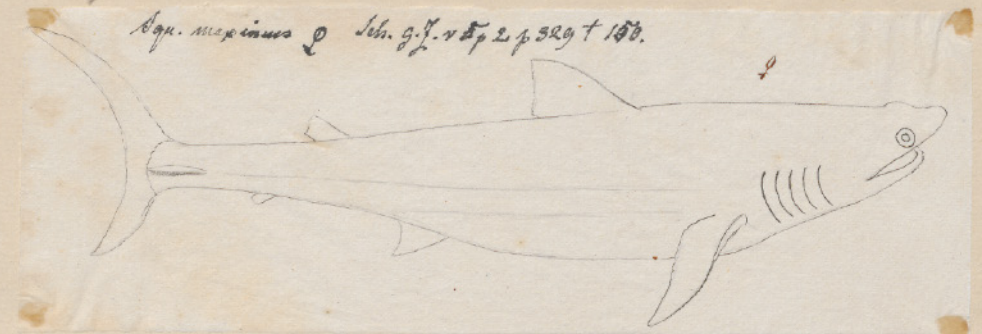 Squ. maximus ♀ Sch. g. J. v 5 p 2 p 329 † 150.
♀